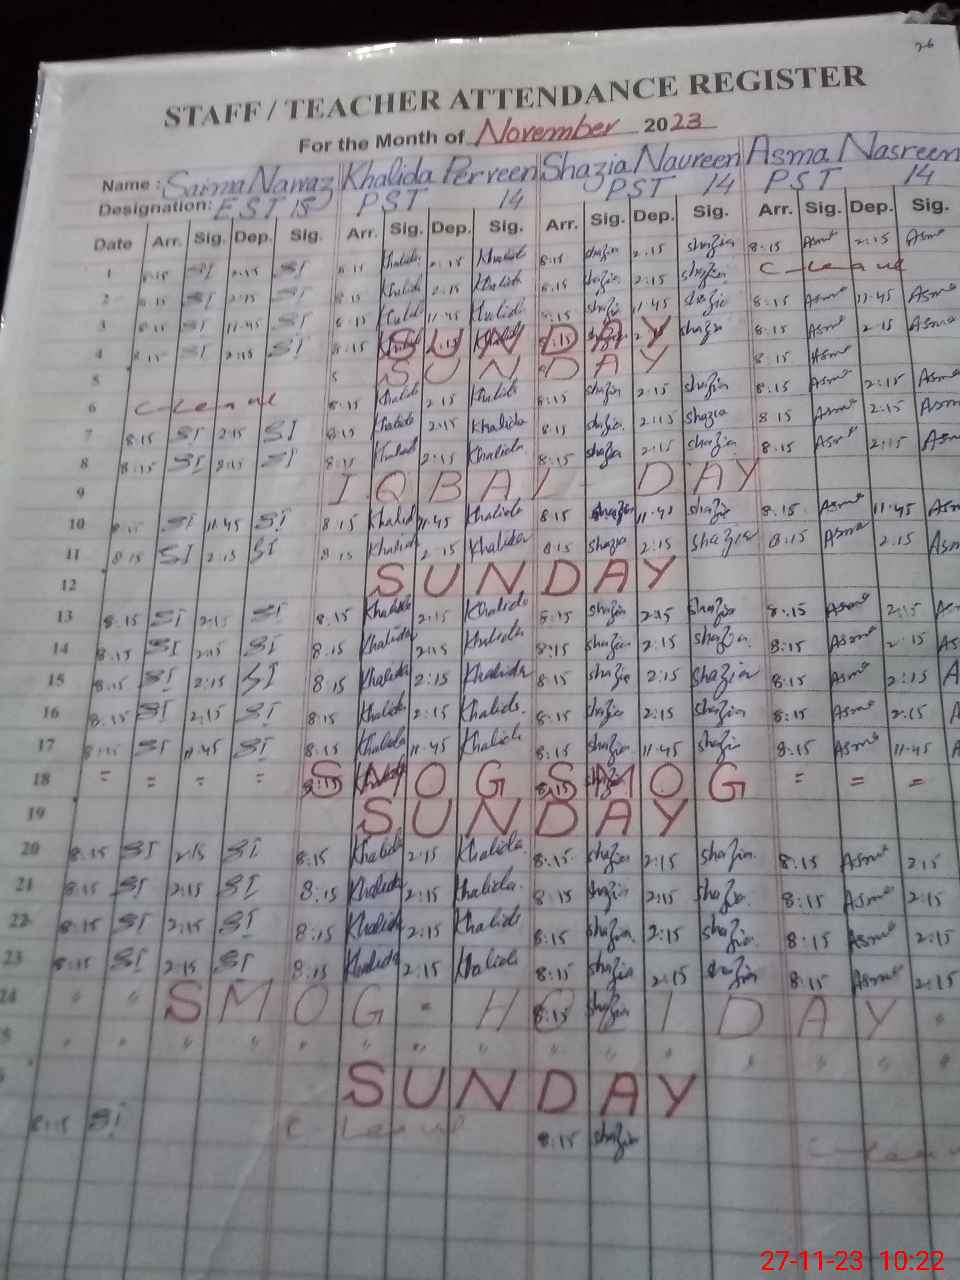 26
STAFF / TEACHER ATTENDANCE REGISTER
For the Month of November 2023
Name : Saima Nawaz Khalida Perveen Shazia Naureen Asma Nasreen
Designation: EST 15 PST 14 PST 14 PST 14
Date Arr. Sig. Dep. Sig. Arr. Sig. Dep. Sig. Arr. Sig. Dep. Sig. Arr. Sig. Dep. Sig.
1 8:15 SI 2:15 SI 8:15 Khalida 2:15 Khalida 8:15 shazia 2:15 shazia 8:15 Asma 2:15 Asma
2 8:15 SI 2:15 SI 8:15 Khalida 2:15 Khalida 8:15 shazia 2:15 shazia C-leave
3 8:15 SI 11:45 SI 8:15 11:45 Khalida 8:15 shazia 11:45 shazia 8:15 Asma 11:45 Asma
4 8:15 SI 2:15 SI 8:15 SUNDAY shazia 8:15 Asma 2:15 Asma
5 SUNDAY 8:15 Asma
6 C-leave 8:15 Khalida 2:15 Khalida 8:15 shazia 2:15 shazia 8:15 Asma 2:15 Asma
7 8:15 SI 2:15 SI 8:15 Khalida 2:15 Khalida 8:15 shazia 2:15 shazia 8:15 Asma 2:15 Asm
8 8:15 SI 2:15 SI 8:15 Khalida 2:15 Khalida 8:15 shazia 2:15 shazia 8:15 Asma 2:15 Asm
9 IQBAL DAY
10 8:15 SI 11:45 SI 8:15 Khalid 11:45 Khalida 8:15 shazia 11:45 shazia 8:15 Asma 11:45 Asm
11 8:15 SI 2:15 SI 8:15 Khalida 2:15 Khalida 8:15 shazia 2:15 shazia 8:15 Asma 2:15 Asm
12 SUNDAY
13 8:15 SI 2:15 SI 8:15 Khalida 2:15 Khalida 8:15 shazia 2:15 shazia 8:15 Asma 2:15
14 8:15 SI 2:15 SI 8:15 Khalida 2:15 Khalida 8:15 shazia 2:15 shazia 8:15 Asma 2:15 As
15 8:15 SI 2:15 SI 8:15 Khalida 2:15 Khalida 8:15 shazia 2:15 shazia 8:15 Asma 2:15 A
16 8:15 SI 2:15 SI 8:15 Khalida 2:15 Khalida 8:15 shazia 2:15 shazia 8:15 Asma 2:15
17 8:15 SI 11:45 SI 8:15 Khalida 11:45 Khalida 8:15 shazia 11:45 shazia 8:15 Asma 11:45 A
18 = = = = SMOG SMOG = = =
19 SUNDAY
20 8:15 SI 2:15 SI 8:15 Khalida 2:15 Khalida 8:15 shazia 2:15 shazia 8:15 Asma 2:15
21 8:15 SI 2:15 SI 8:15 Khalida 2:15 Khalida 8:15 shazia 2:15 shazia 8:15 Asma 2:15
22 8:15 SI 2:15 SI 8:15 Khalida 2:15 Khalida 8:15 shazia 2:15 shazia 8:15 Asma 2:15
23 8:15 SI 2:15 SI 8:15 Khalida 2:15 Khalida 8:15 shazia 2:15 shazia 8:15 Asma 2:15
24 " " SMOG = H 8:15 shazia IDAY "
" " " " " " " " " " " "
SUNDAY
8:15 SI C-Leave 8:15 shazia C-leave
27-11-23 10:22